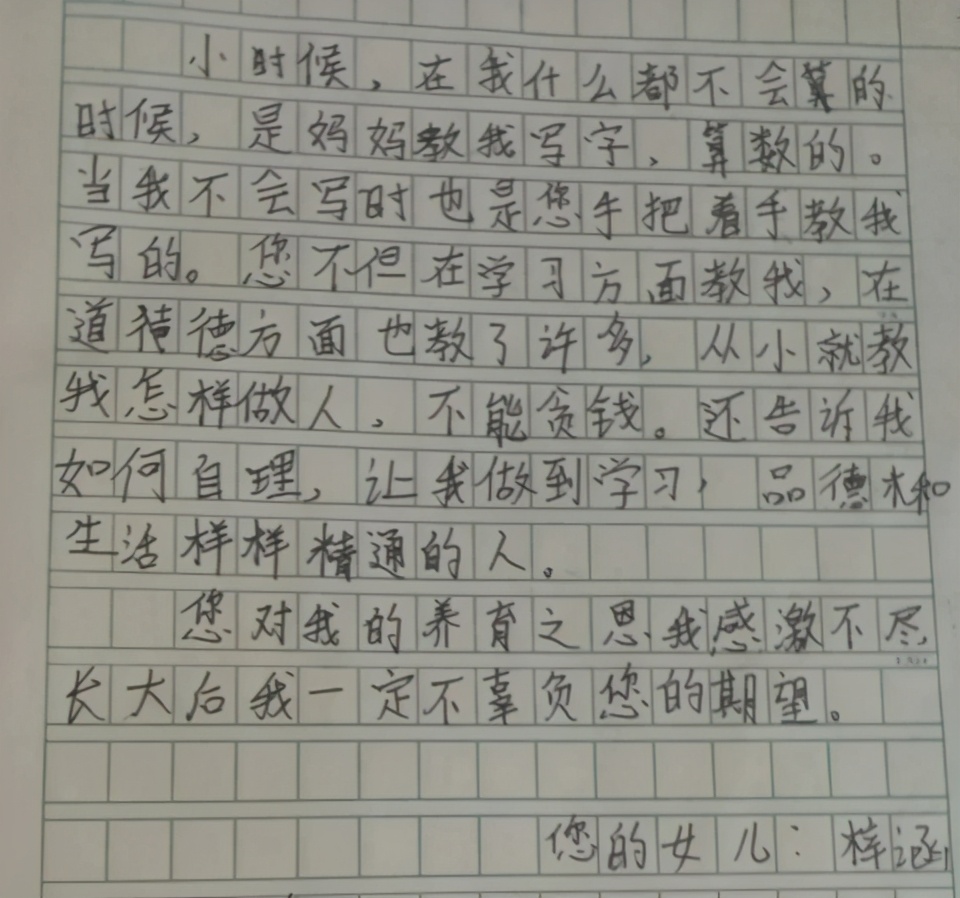 小时候，在我什么都不会算的
时候，是妈妈教我写字，算数的。
当我不会写时也是您手把着手教我
写的。您不但在学习方面教我，在
道德方面也教了许多，从小就教
我怎样做人，不能贪钱。还告诉我
如何自理，让我做到学习，品德和
生活样样精通的人。
您对我的养育之恩我感激不尽
长大后我一定不辜负您的期望。
您的女儿：梓涵